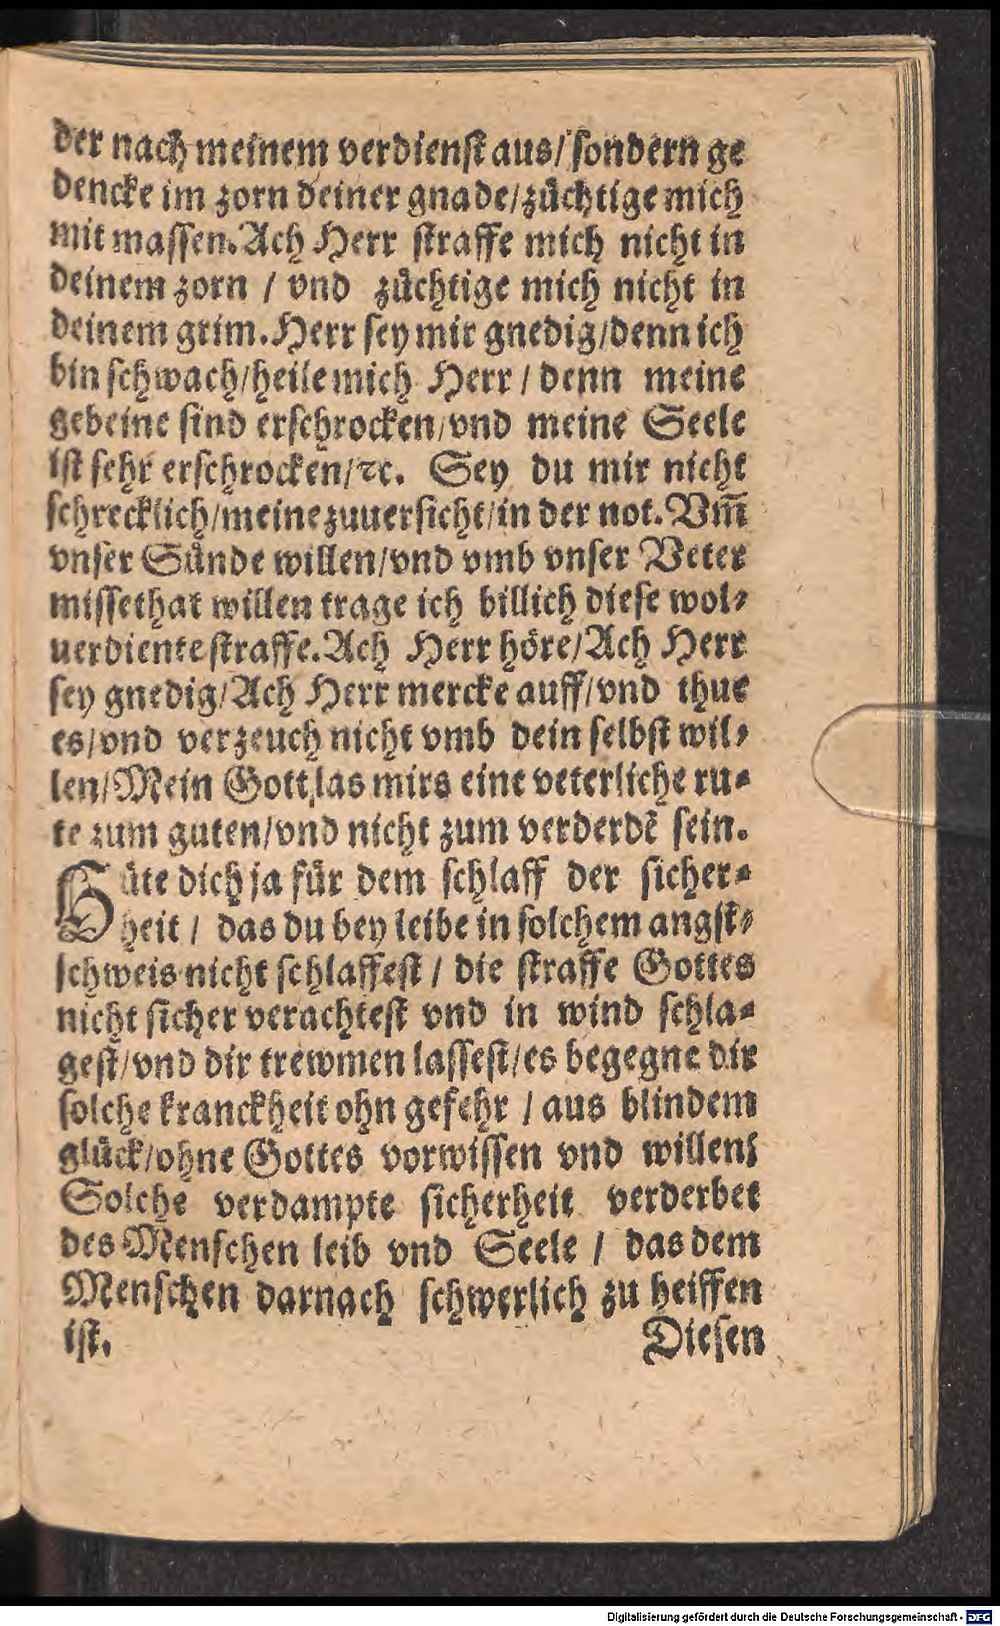 der nach meinem verdienst aus/ sondern ge
dencke im zorn deiner gnade/züchtige mich
mit massen. Ach Herr straffe mich nicht in
deinem zorn / vnd züchtige mich nicht in
deinem grim. Herr sey mir gnedig/denn ich
bin schwach/heile mich Herr / denn meine
gebeine sind erschrocken/vnd meine Seele
ist sehr erschrocken/ꝛc. Sey du mir nicht
schrecklich/meine zuuersicht/in der not. Vm̃
vnser Sünde willen/vnd vmb vnser Veter
missethat willen trage ich billich diese wol-
uerdiente straffe. Ach Herr höre/Ach Herr
sey gnedig/Ach Herr mercke auff/vnd thue
es/vnd verzeuch nicht vmb dein selbst wil-
len/Mein Gott,las mirs eine veterliche ru-
te zum guten/vnd nicht zum verderdẽ sein.
Hüte dich ja für dem schlaff der sicher-
heit / das du bey leibe in solchem angst-
schweis nicht schlaffest / die straffe Gottes
nicht sicher verachtest vnd in wind schla-
gest/vnd dir trewmen lassest/es begegne dir
solche kranckheit ohn gefehr / aus blindem
glück/ohne Gottes vorwissen vnd willen:
Solche verdampte sicherheit verderbet
des Menschen leib vnd Seele / das dem
Menschen darnach schwerlich zu heiffen
ist. Diesen
Digitalisierung gefördert durch die Deutsche Forschungsgemeinschaft - DFG